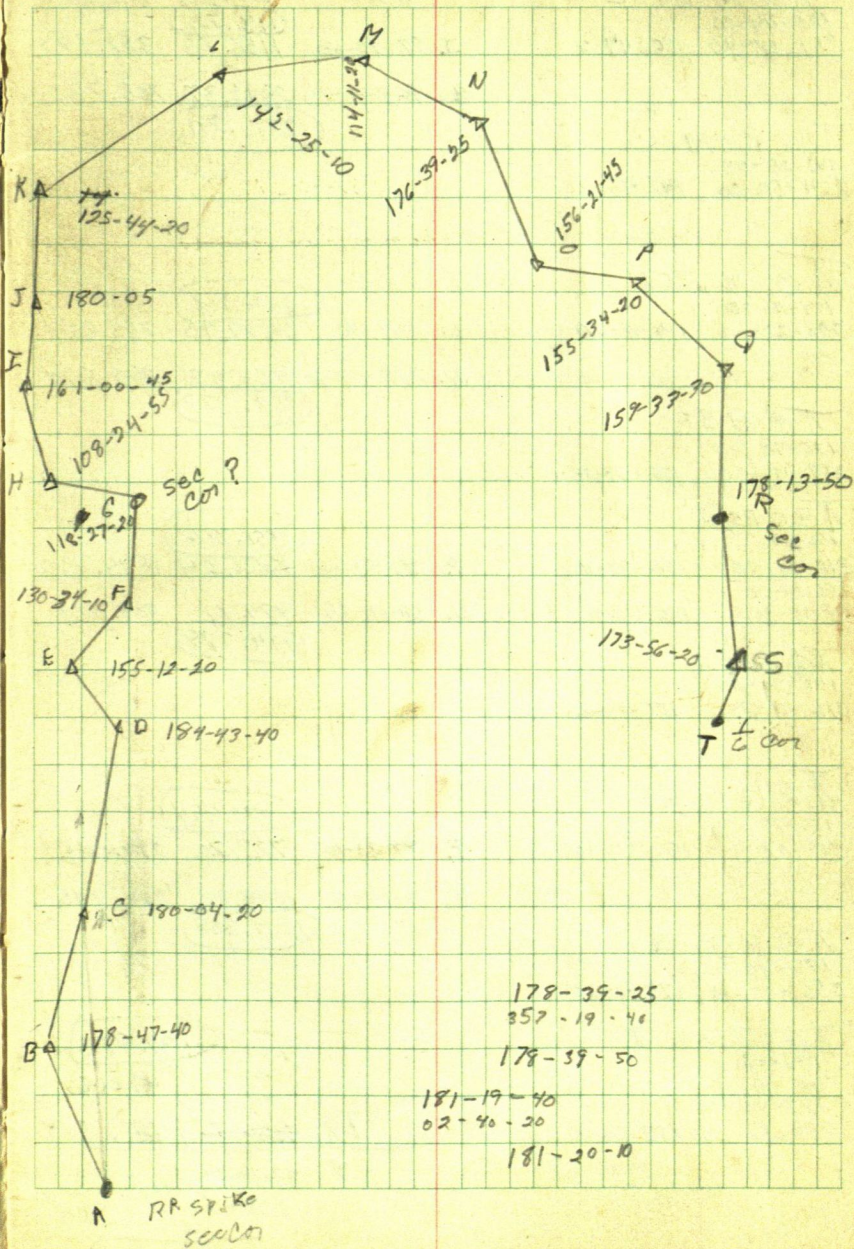 L
M
N
142-25-10
114-11-20
176-39-25
K
125-44-20
156-21-45
O
P
J 180-05
155-34-20
Q
I
161-00-45
159-33-30
108-24-55
H
sec
cor ?
G
118-27-20
178-13-50
R
sec
cor
130-34-10 F
E 155-12-20
173-56-20
S
D 184-43-40
T
cor
C 180-04-20
178-39-25
357-19-40
B 178-47-40
178-39-50
181-19-40
02-40-20
181-20-10
A
RR SPIKE
sec cor